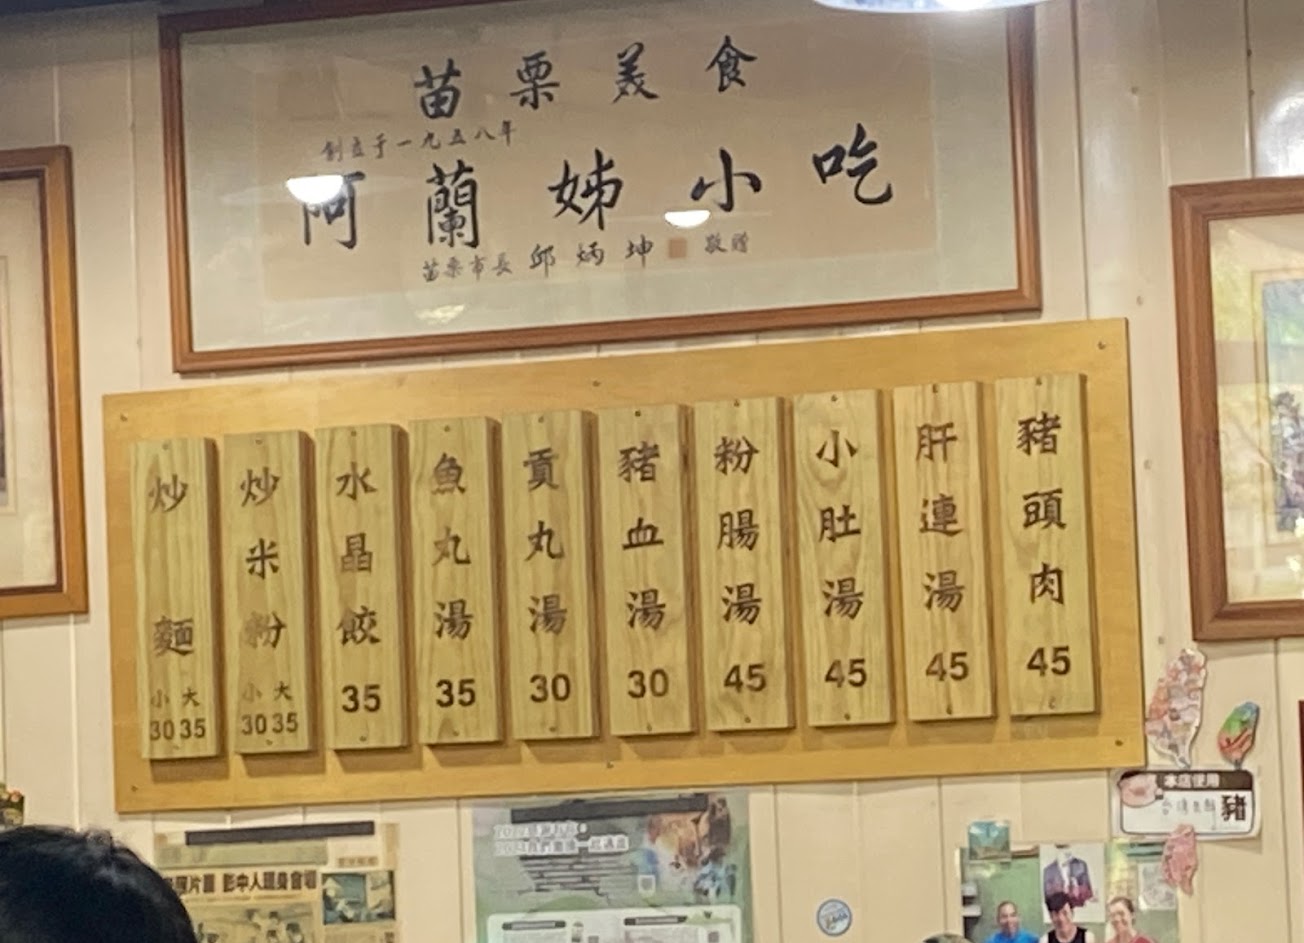 苗栗美食
創立于一九五八年
阿蘭姊小吃
苗栗市長 邱炳坤 敬贈
炒麵 小30 大35
炒米粉 小30 大35
水晶餃 35
魚丸湯 35
貢丸湯 30
豬血湯 30
粉腸湯 45
小肚湯 45
肝連湯 45
豬頭肉 45
本店使用
豬
片圖 影中人現身會唱